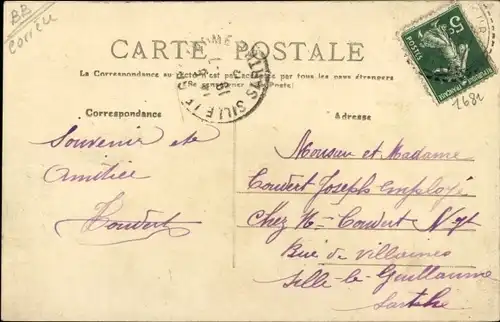 BB
Correu
CARTE POSTALE
La Correspondance au recto n'est pas acceptée par tous les pays étrangers
(Se renseigner à la Poste)
Correspondance
Adresse
Souvenir et
Amitiée
Touvert
Monsieur et Madame
Touvert Joseph employé
Chez M- Touvert N
Rue de Villaines
Sille-le-Guillaume
Sarthe
SILLÉ LE G
SARTHE
5c
POSTES
REPUBLIQUE FRANÇAISE
2681